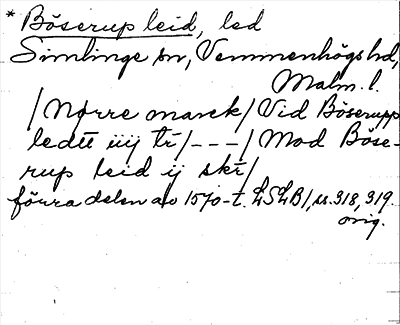 * Böserup leid, led
Simlinge sn, Vemmenhögs hd,
Malm. l.
/Nørre marck/ Vid Böserupp
ledtt iiij tr/---/ Mod Böse-
rup leid ij skr/
förra delen av 1570-t. LSLB1, ss. 318, 319.
orig.